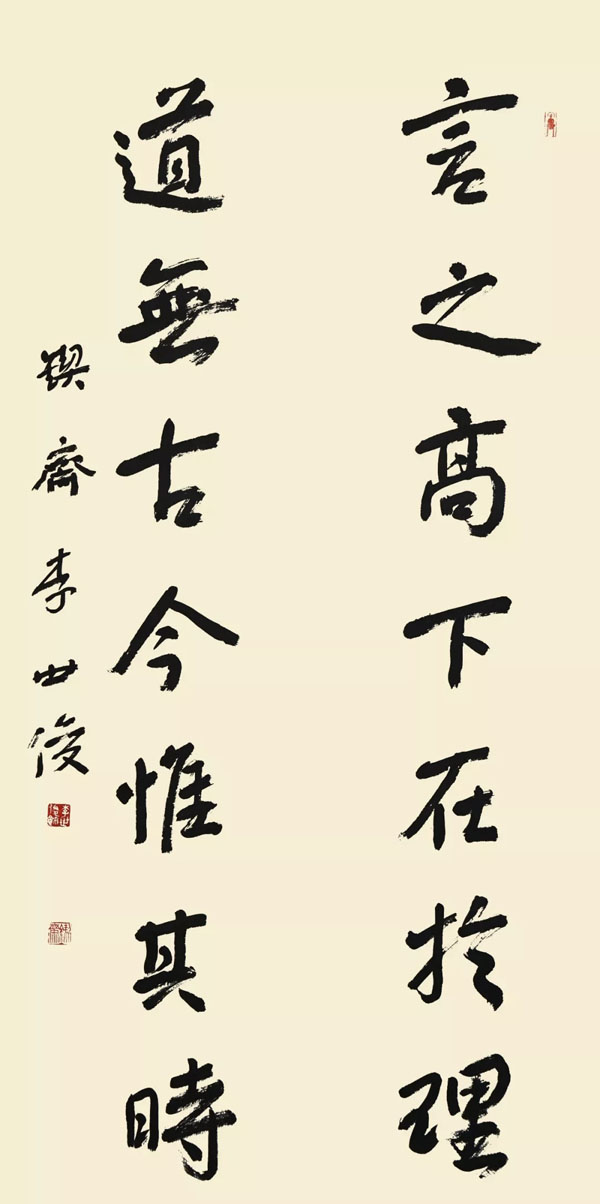 言之高下在於理
道無古今惟其時
鍥齋李世俊